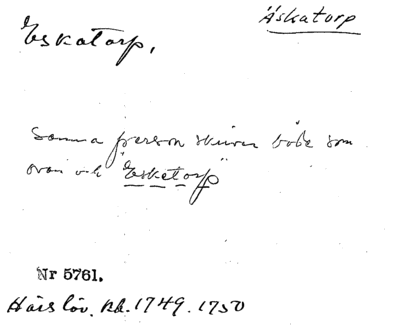 Äskatorp
Eskatorp,
Samma person skriver både som
ovan och "Esketorp"
Nr 5761.
Häislöv. kb. 1749. 1750